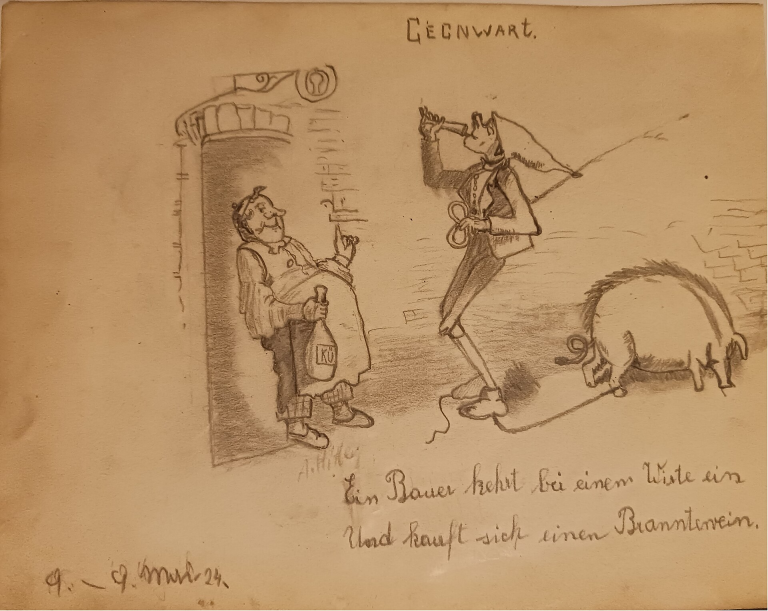 GEGNWART.
KÜ
Ein Bauer kehrt bei einem Wirte ein
Und kauft sich einen Branntwein.
24.